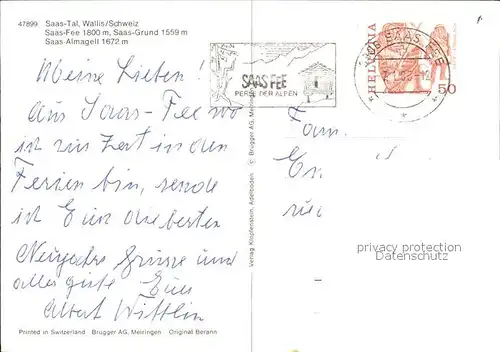 47899 Saas-Tal, Wallis/Schweiz
Saas-Fee 1800 m, Saas-Grund 1559 m
Saas-Almagell 1672 m
SAAS FEE
PERLE DER ALPEN
SAAS-FEE
HELVETIA
50
Meine Lieben!
Aus Saas-Fee wo
ich zur Zeit in den
Ferien bin, sende
ich Euch die besten
Neujahrs Grüsse und
alles gute Euer
Albert Wittlin
Fam.
Verlag Klopfenstein, Adelboden © Brügger AG, Meiringen
privacy protection
Datenschutz
Printed in Switzerland Brügger AG, Meiringen Original Berann